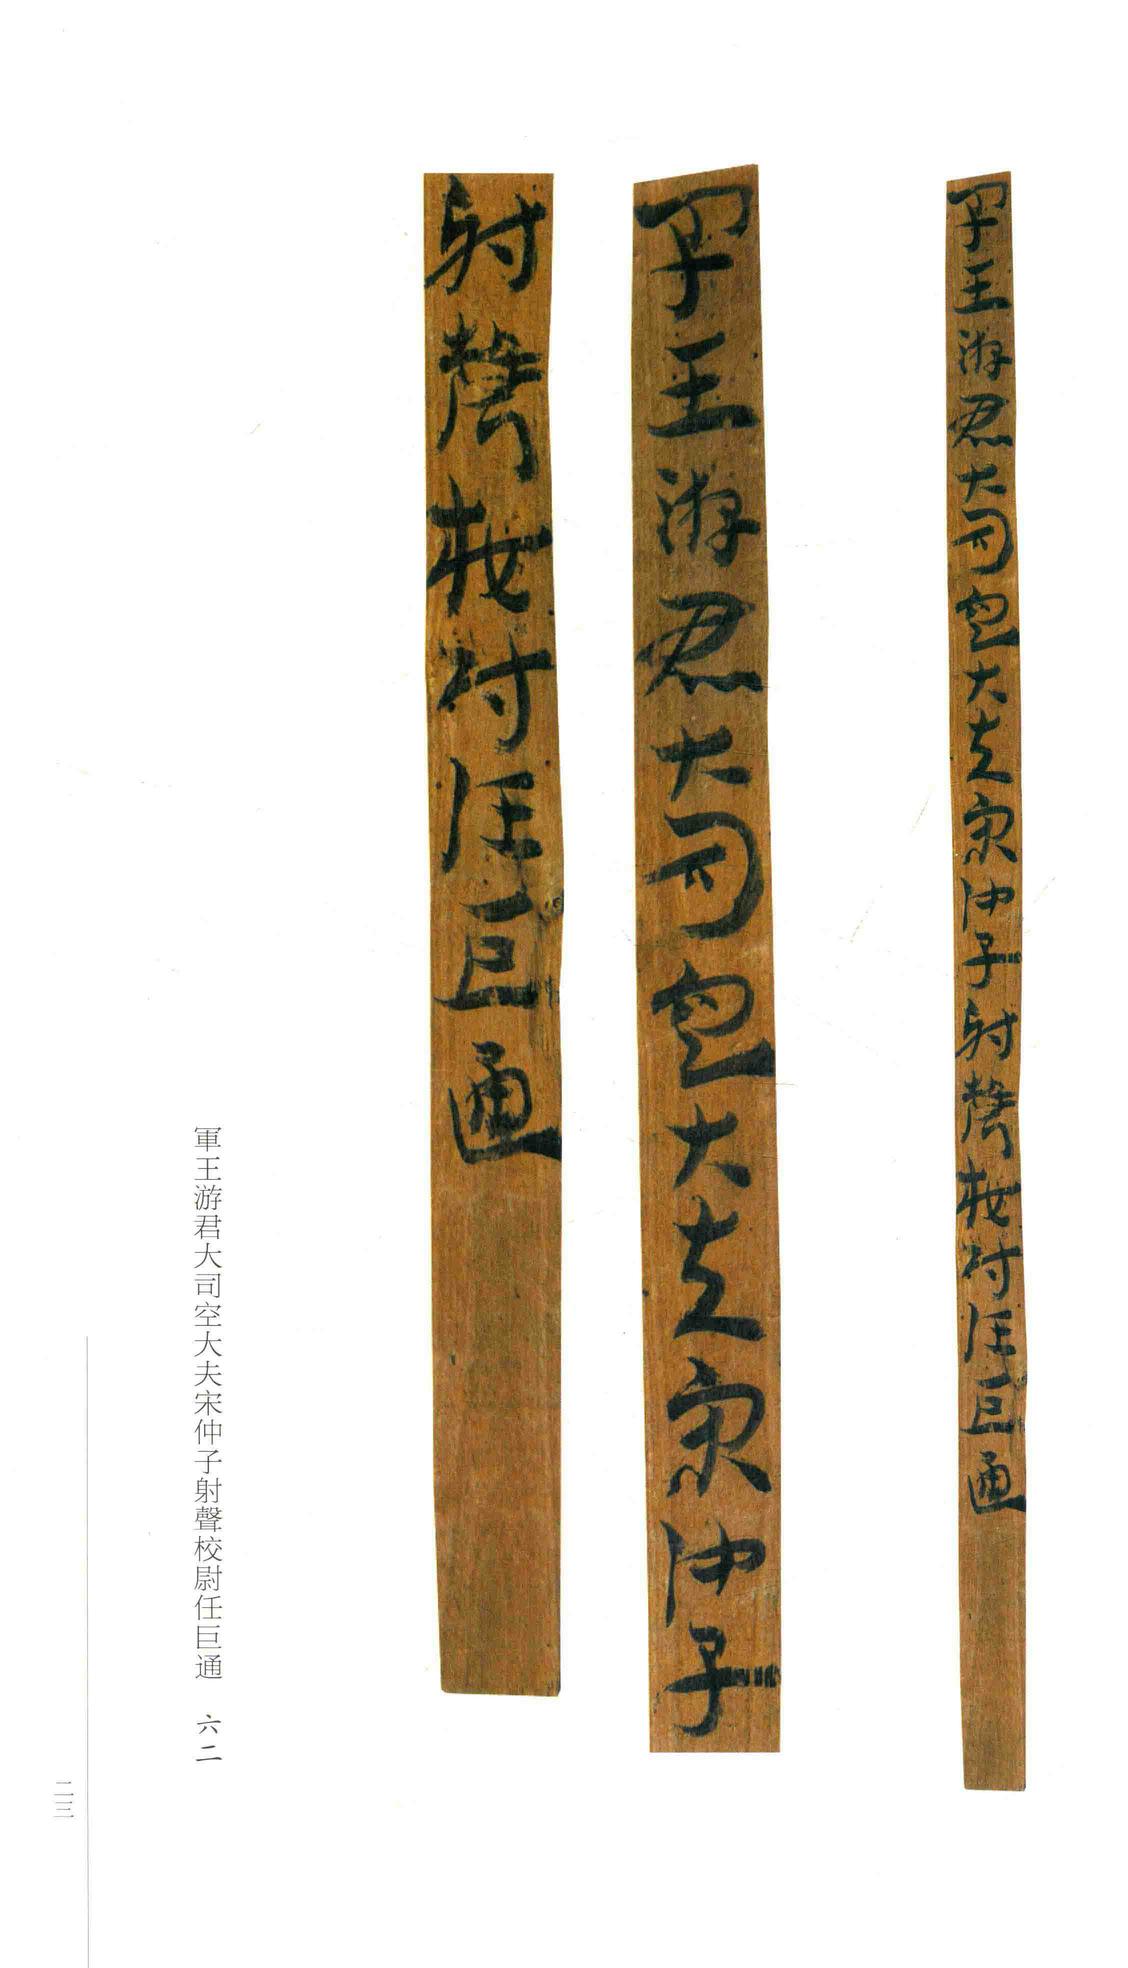 軍王游君大司空大夫宋仲子射聲校尉任巨通
軍王游君大司空大夫宋仲子
射聲校尉任巨通
軍王游君大司空大夫宋仲子射聲校尉任巨通 六二
二三